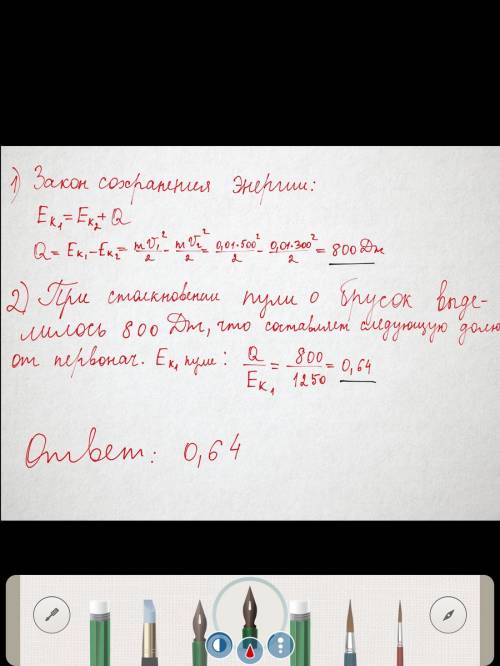 1) Закон сохранения энергии:
Eк₁ = Eк₂ + Q
Q = Eк₁ - Eк₂ = mV₁²/2 - mV₂²/2 = 0,01·500²/2 - 0,01·300²/2 = 800 Дж
2) При столкновении пули о брусок выде-
лилось 800 Дж, что составляет следующую долю
от первонач. Eк₁ пули: Q/Eк₁ = 800/1250 = 0,64
Ответ: 0,64